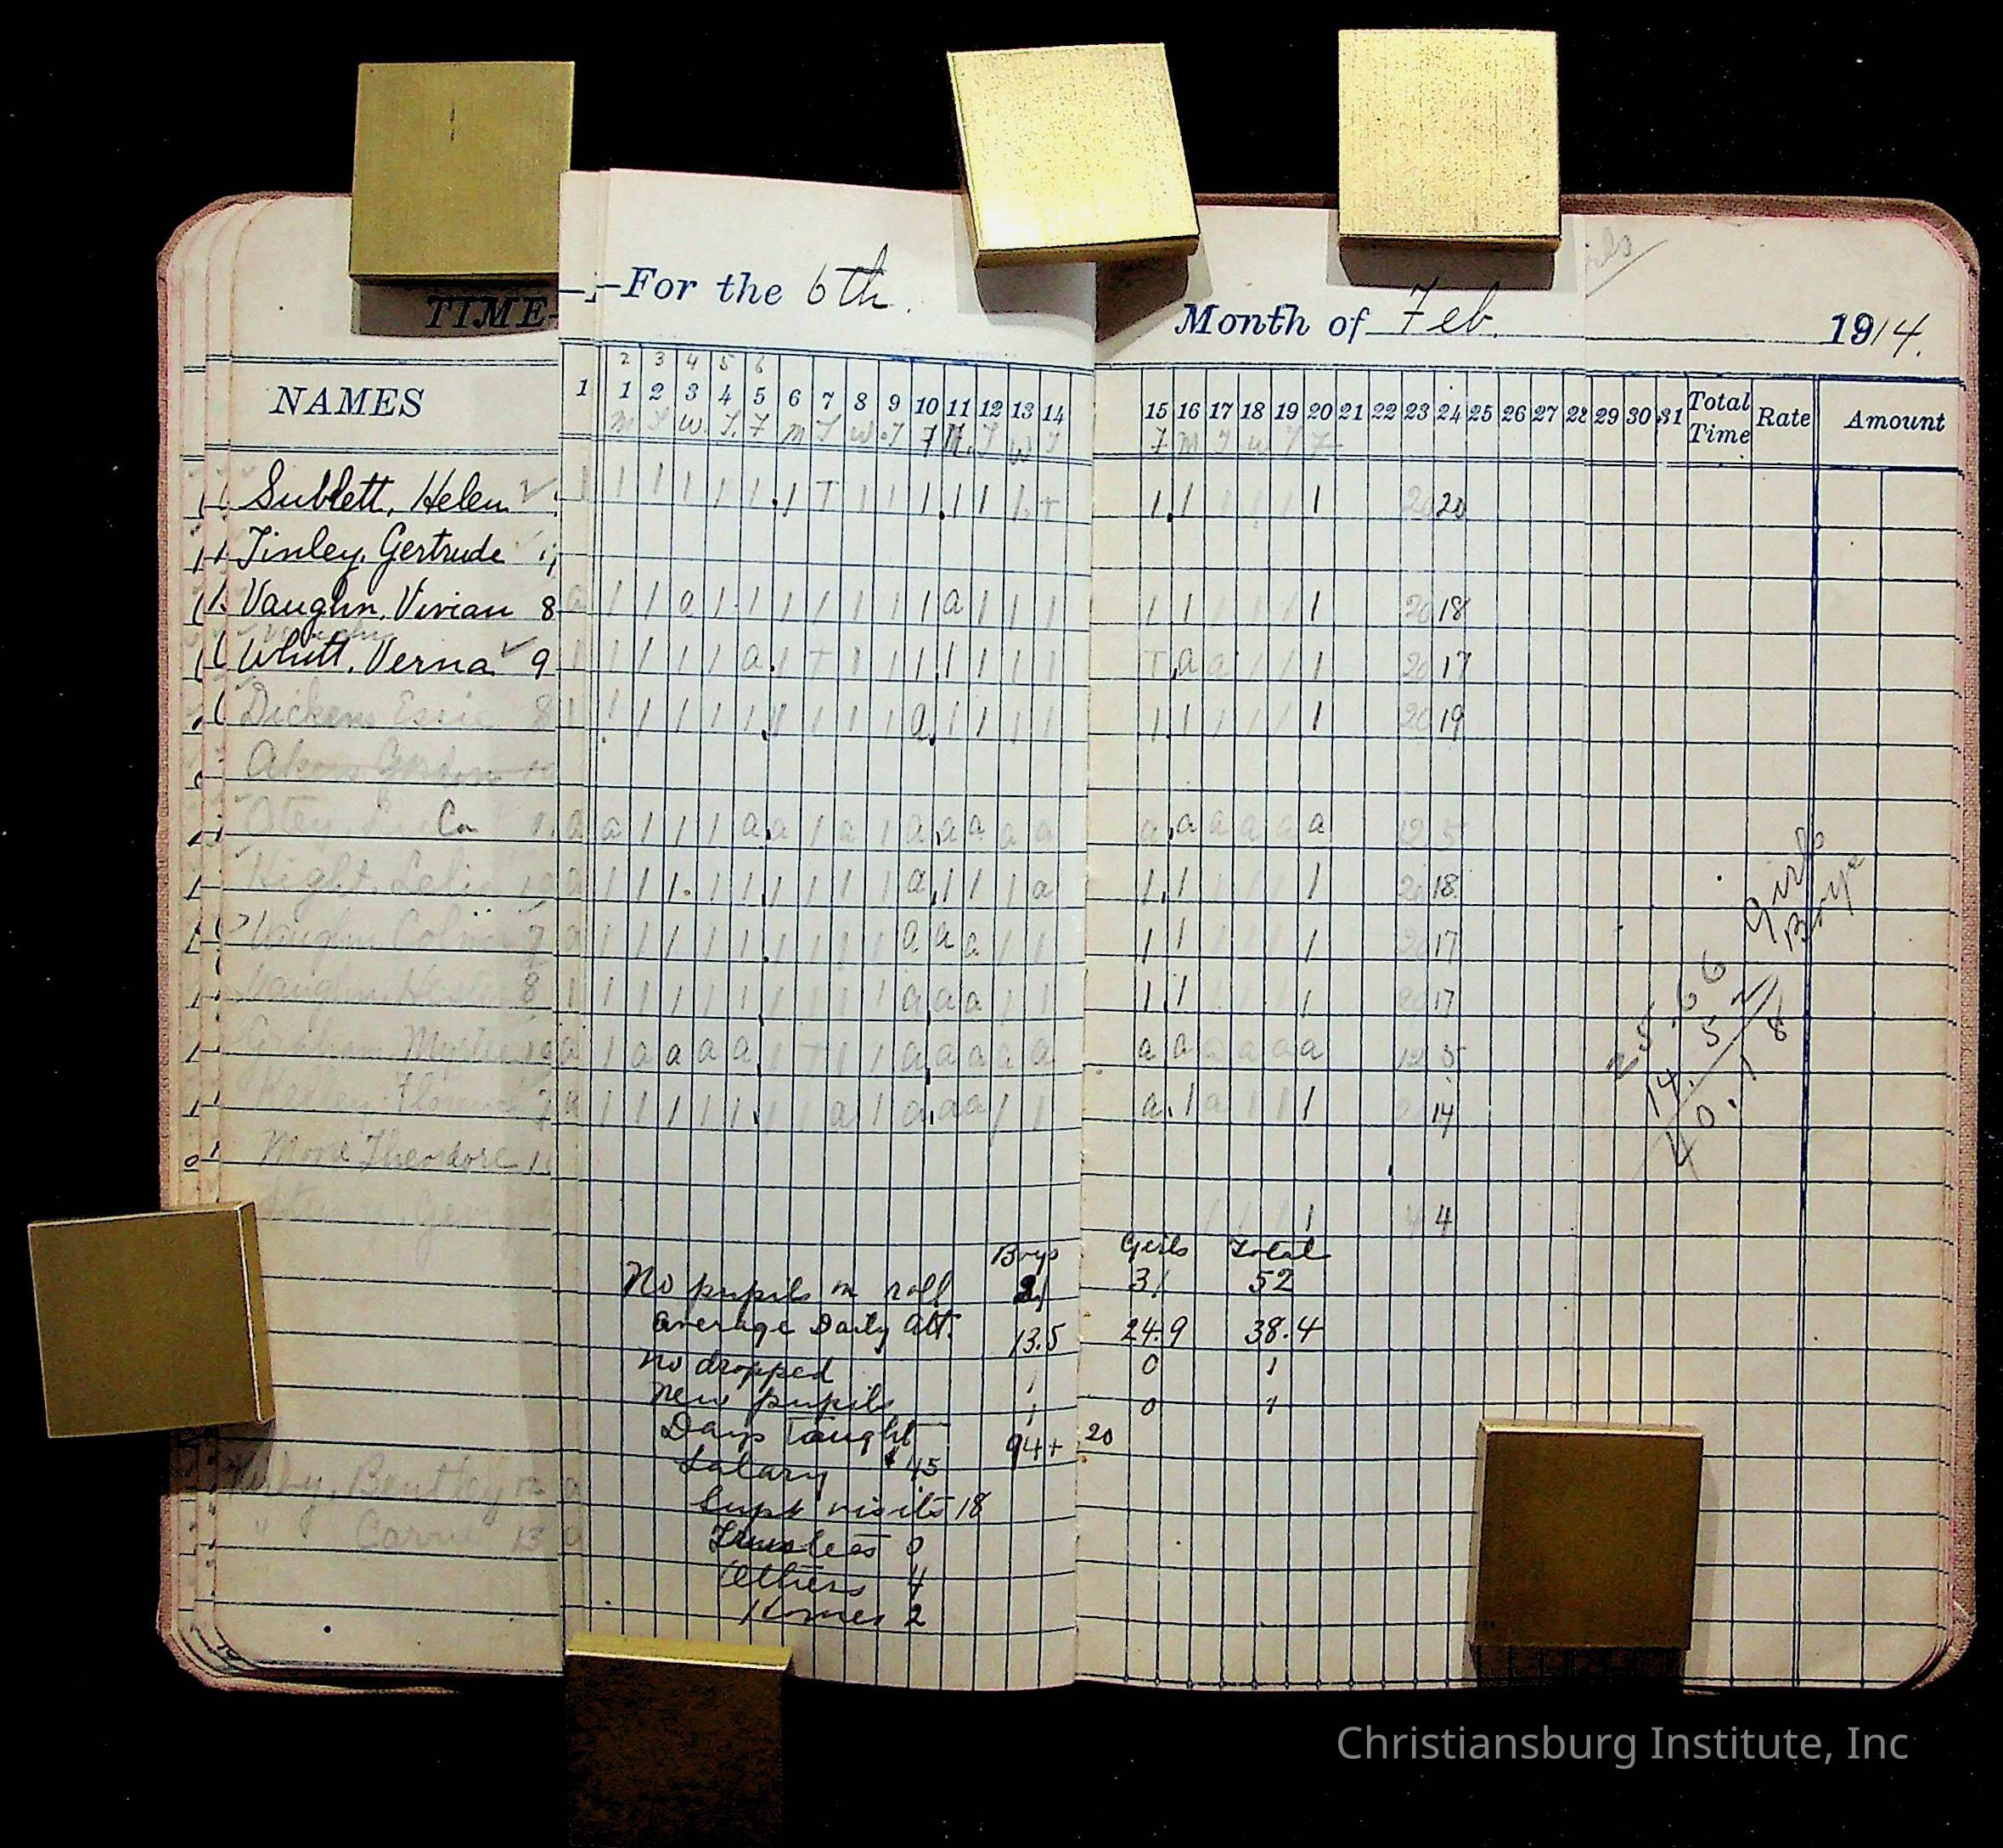 TIME-
-For the 6th
Month of Feb. 1914.
2 3 4 5 6
NAMES 1 1 2 3 4 5 6 7 8 9 10 11 12 13 14 15 16 17 18 19 20 21 22 23 24 25 26 27 28 29 30 31 Total Time Rate Amount
M T W. T. F M T W T F M. T W T F M T W T F
Sublett, Helen 1 1 1 1 1 1 1 T 1 1 1 1 1 1 T 1 1 1 1 1 1 20 20
Tinley, Gertrude
Vaughn, Vivian 8 a 1 1 a 1 1 1 1 1 1 1 a 1 1 1 1 1 1 1 1 1 20 18
Whitt, Verna 9 1 1 1 1 1 a 1 T 1 1 1 1 1 1 1 T a a 1 1 1 20 17
Dickens Essie 8 1 1 1 1 1 1 1 1 1 1 a 1 1 1 1 1 1 1 1 1 1 20 19
Akers Gordon
Otey, Co a a 1 1 1 a a 1 a 1 a a a a a a a a a a a 12 5
Hight, Lelia 10 a 1 1 1 1 1 1 1 1 1 a 1 1 1 a 1 1 1 1 1 1 20 18
Vaughn 7 a 1 1 1 1 1 1 1 1 1 a a a 1 1 1 1 1 1 1 1 20 17
Vaughn, 8 1 1 1 1 1 1 1 1 1 1 a a a 1 1 1 1 1 1 1 1 20 17
Graham, a 1 a a a a 1 T 1 1 a a a a a a a a a a a 12 5
Kelley, Florence 7 a 1 1 1 1 1 1 1 a 1 a a a 1 1 a 1 a 1 1 1 14
Moore Theodore 11
1 1 1 1 4 4
Boys Girls Total
No pupils on roll 21 31 52
Average Daily Att. 13.5 24.9 38.4
No dropped 1 0 1
New pupils 1 0 1
Days Taught 94+ 20
Salary $45
Supt visits 18
Trustees 0
Others 4
Homes 2
Bentley 12 a
" Carrie 13 a
25.66 Girls
14.52 Boys
40.18
Christiansburg Institute, Inc